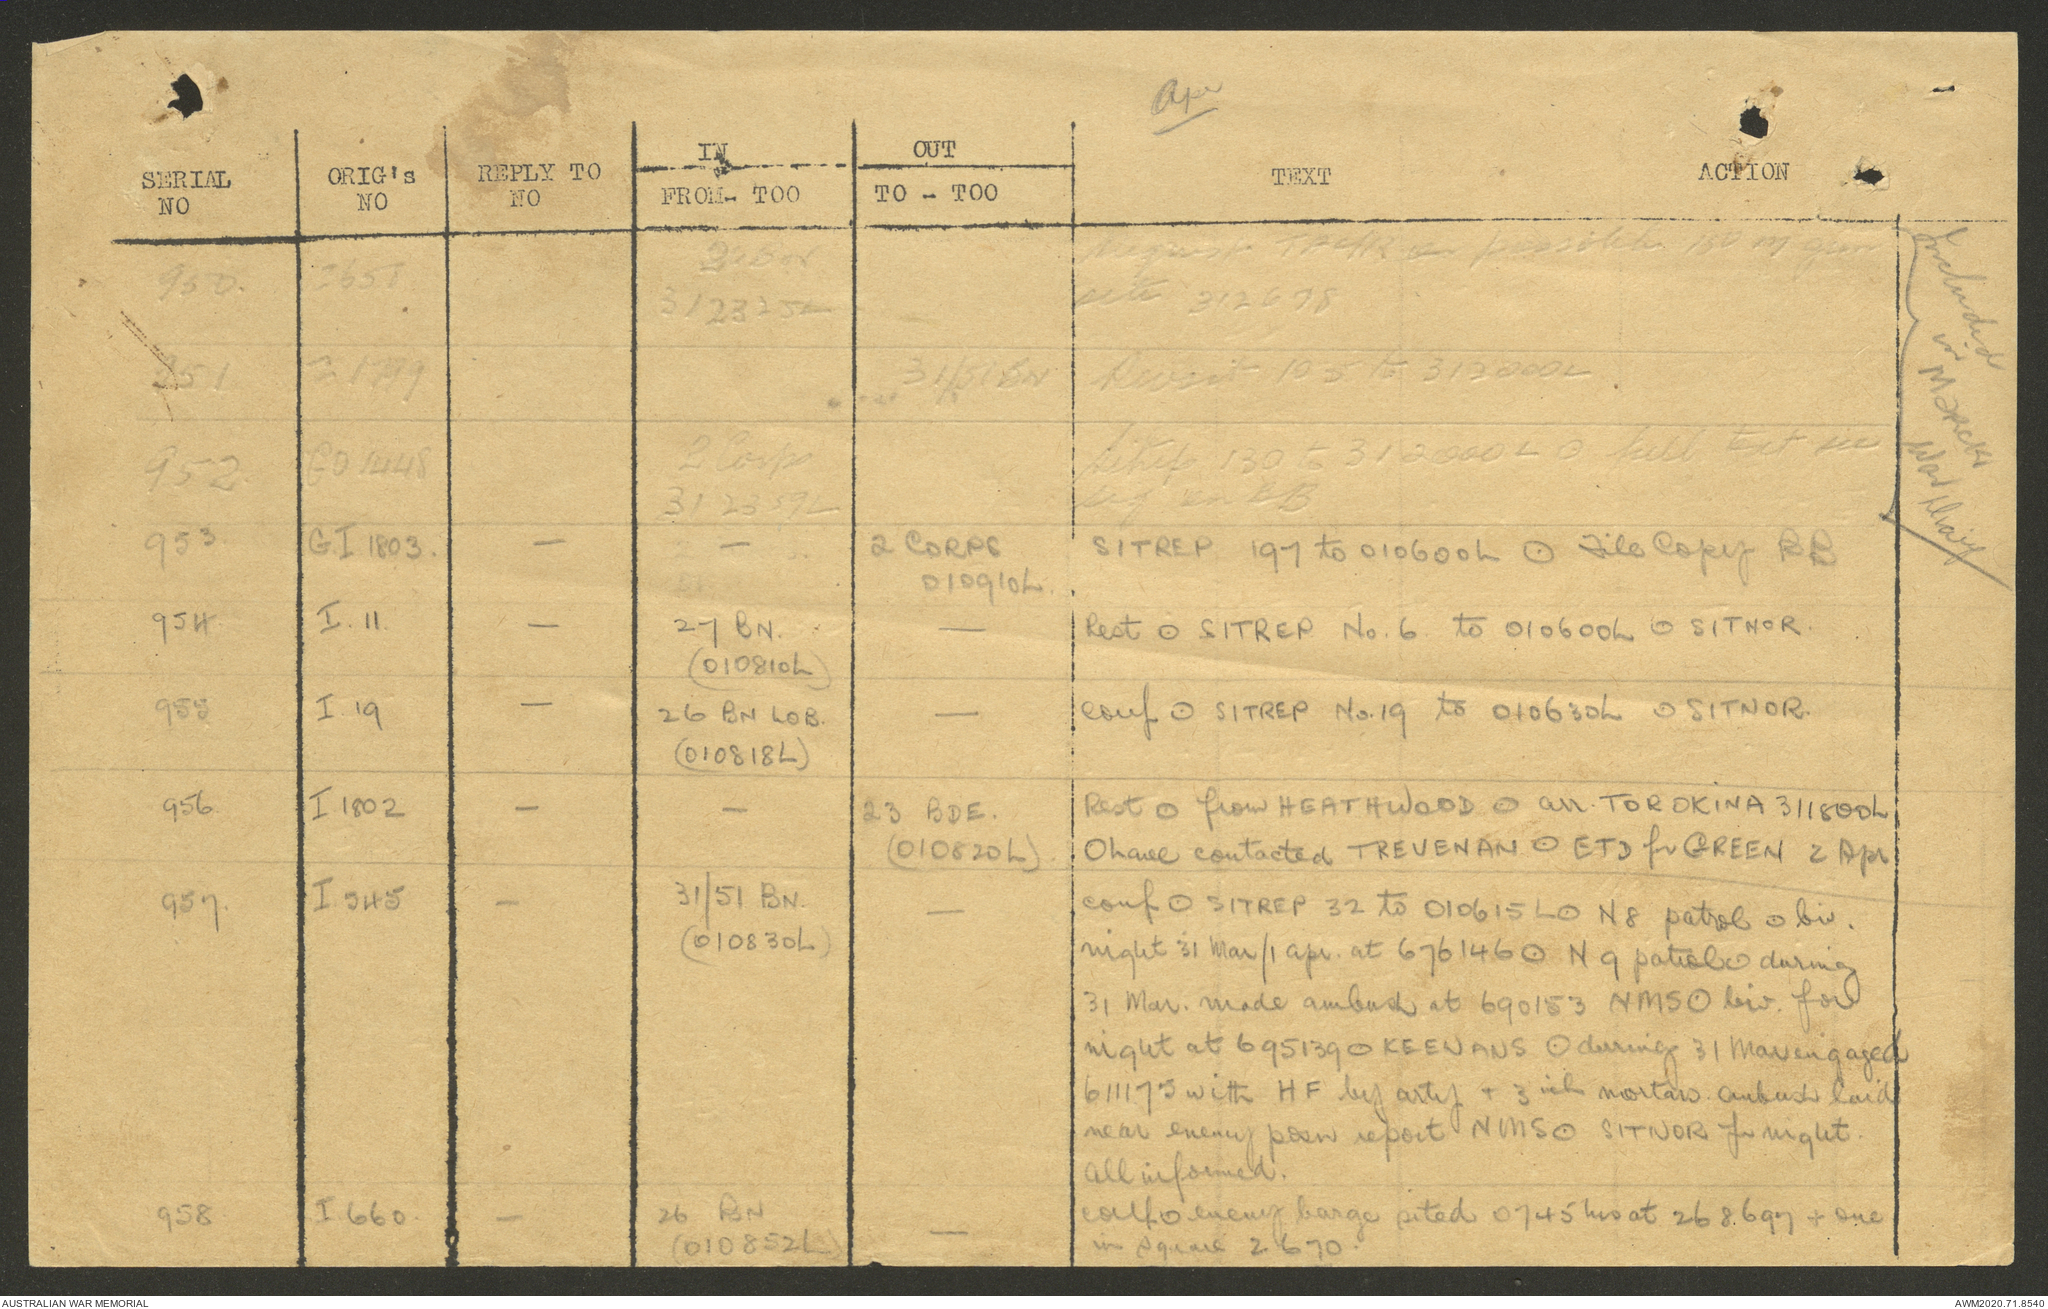 Apr
SERIAL NO
ORIG's NO
REPLY TO NO
IN
FROM - TOO
OUT
TO - TOO
TEXT
ACTION
950. I 651 312325L Request possible 150 m gun
site 312678
951 I 1799 31/51 BN 105 to 312000L
952 GO 1448 2 Corps Sitrep 130 to 312000L ⊙ full text see
312359L
Included
in MARCH
War Diary
953 GI 1803. — — 2 CORPS SITREP 197 to 010600L ⊙ File Copy
010910L.
954 I. 11 — 27 BN. — Rest ⊙ SITREP No. 6 to 010600L ⊙ SITNOR.
(010810L)
955 I 19 — 26 BN LOB. — conf ⊙ SITREP No. 19 to 010630L ⊙ SITNOR.
(010818L)
956 I 1802 — — 23 BDE. Rest ⊙ from HEATHWOOD ⊙ arr. TOROKINA 311800L
(010820L). O have contacted TREVENAN ⊙ ETD for GREEN 2 Apr
957. I 545 — 31/51 BN. — conf ⊙ SITREP 32 to 010615L ⊙ N8 patrol ⊙ biv.
(010830L) night 31 Mar/1 apr. at 676146 ⊙ N 9 patrol ⊙ during
31 Mar. made ambush at 690153 NMS ⊙ biv. for
night at 695139 ⊙ KEENANS ⊙ during 31 Mar engaged
611175 with HF by arty + 3 inch mortars. ambush laid
near enemy posn report NMS ⊙ SITNOR for night.
all informed.
958 I 660 — 26 BN — conf ⊙ enemy barge sited 0745 hrs at 268697 + one
(010852L) in square 2670.
AUSTRALIAN WAR MEMORIAL
AWM2020.71.8540